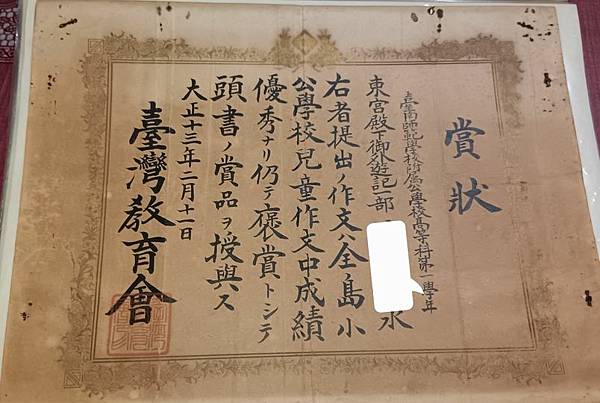 賞狀
臺南師範學校附屬公學校高等科第一學年
東宮殿下御外遊記一部
永
右者提出ノ作文ハ全島小
公學校兒童作文中成績
優秀ナリ仍テ褒賞トシテ
頭書ノ賞品ヲ授與ス
大正十三年二月十一日
臺灣教育會